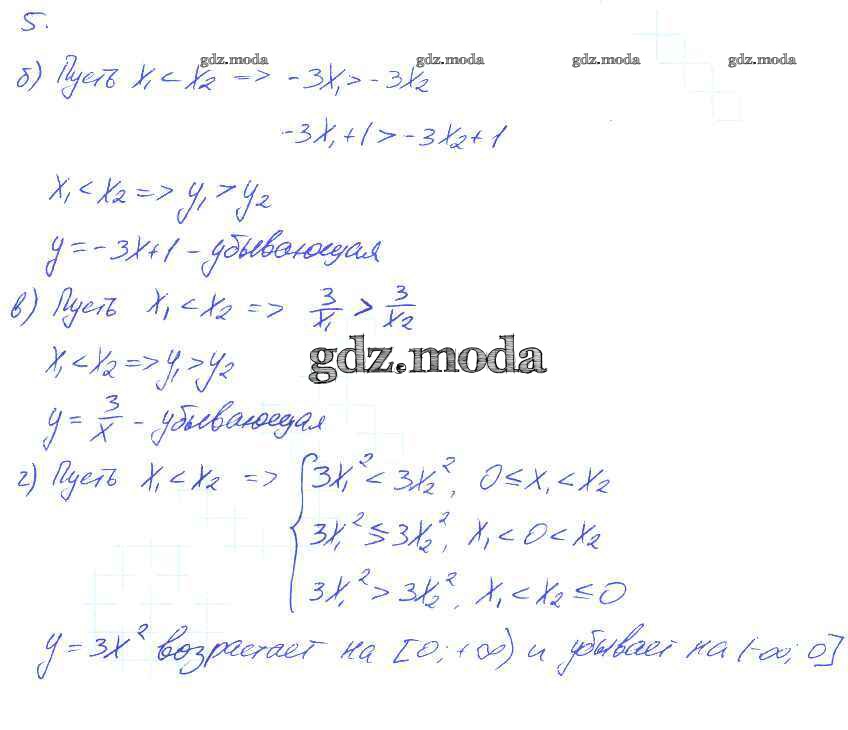 5.
gdz.moda gdz.moda gdz.moda gdz.moda
б) Пусть x₁ < x₂ => -3x₁ > -3x₂
-3x₁+1 > -3x₂+1
x₁ < x₂ => y₁ > y₂
y = -3x+1 - убывающая
в) Пусть x₁ < x₂ => 3/x₁ > 3/x₂
x₁ < x₂ => y₁ > y₂
gdz.moda
y = 3/x - убывающая
г) Пусть x₁ < x₂ => { 3x₁² < 3x₂², 0 ≤ x₁ < x₂
3x₁² ≶ 3x₂², x₁ < 0 < x₂
3x₁² > 3x₂², x₁ < x₂ ≤ 0
y = 3x² возрастает на [0; +∞) и убывает на (-∞; 0]